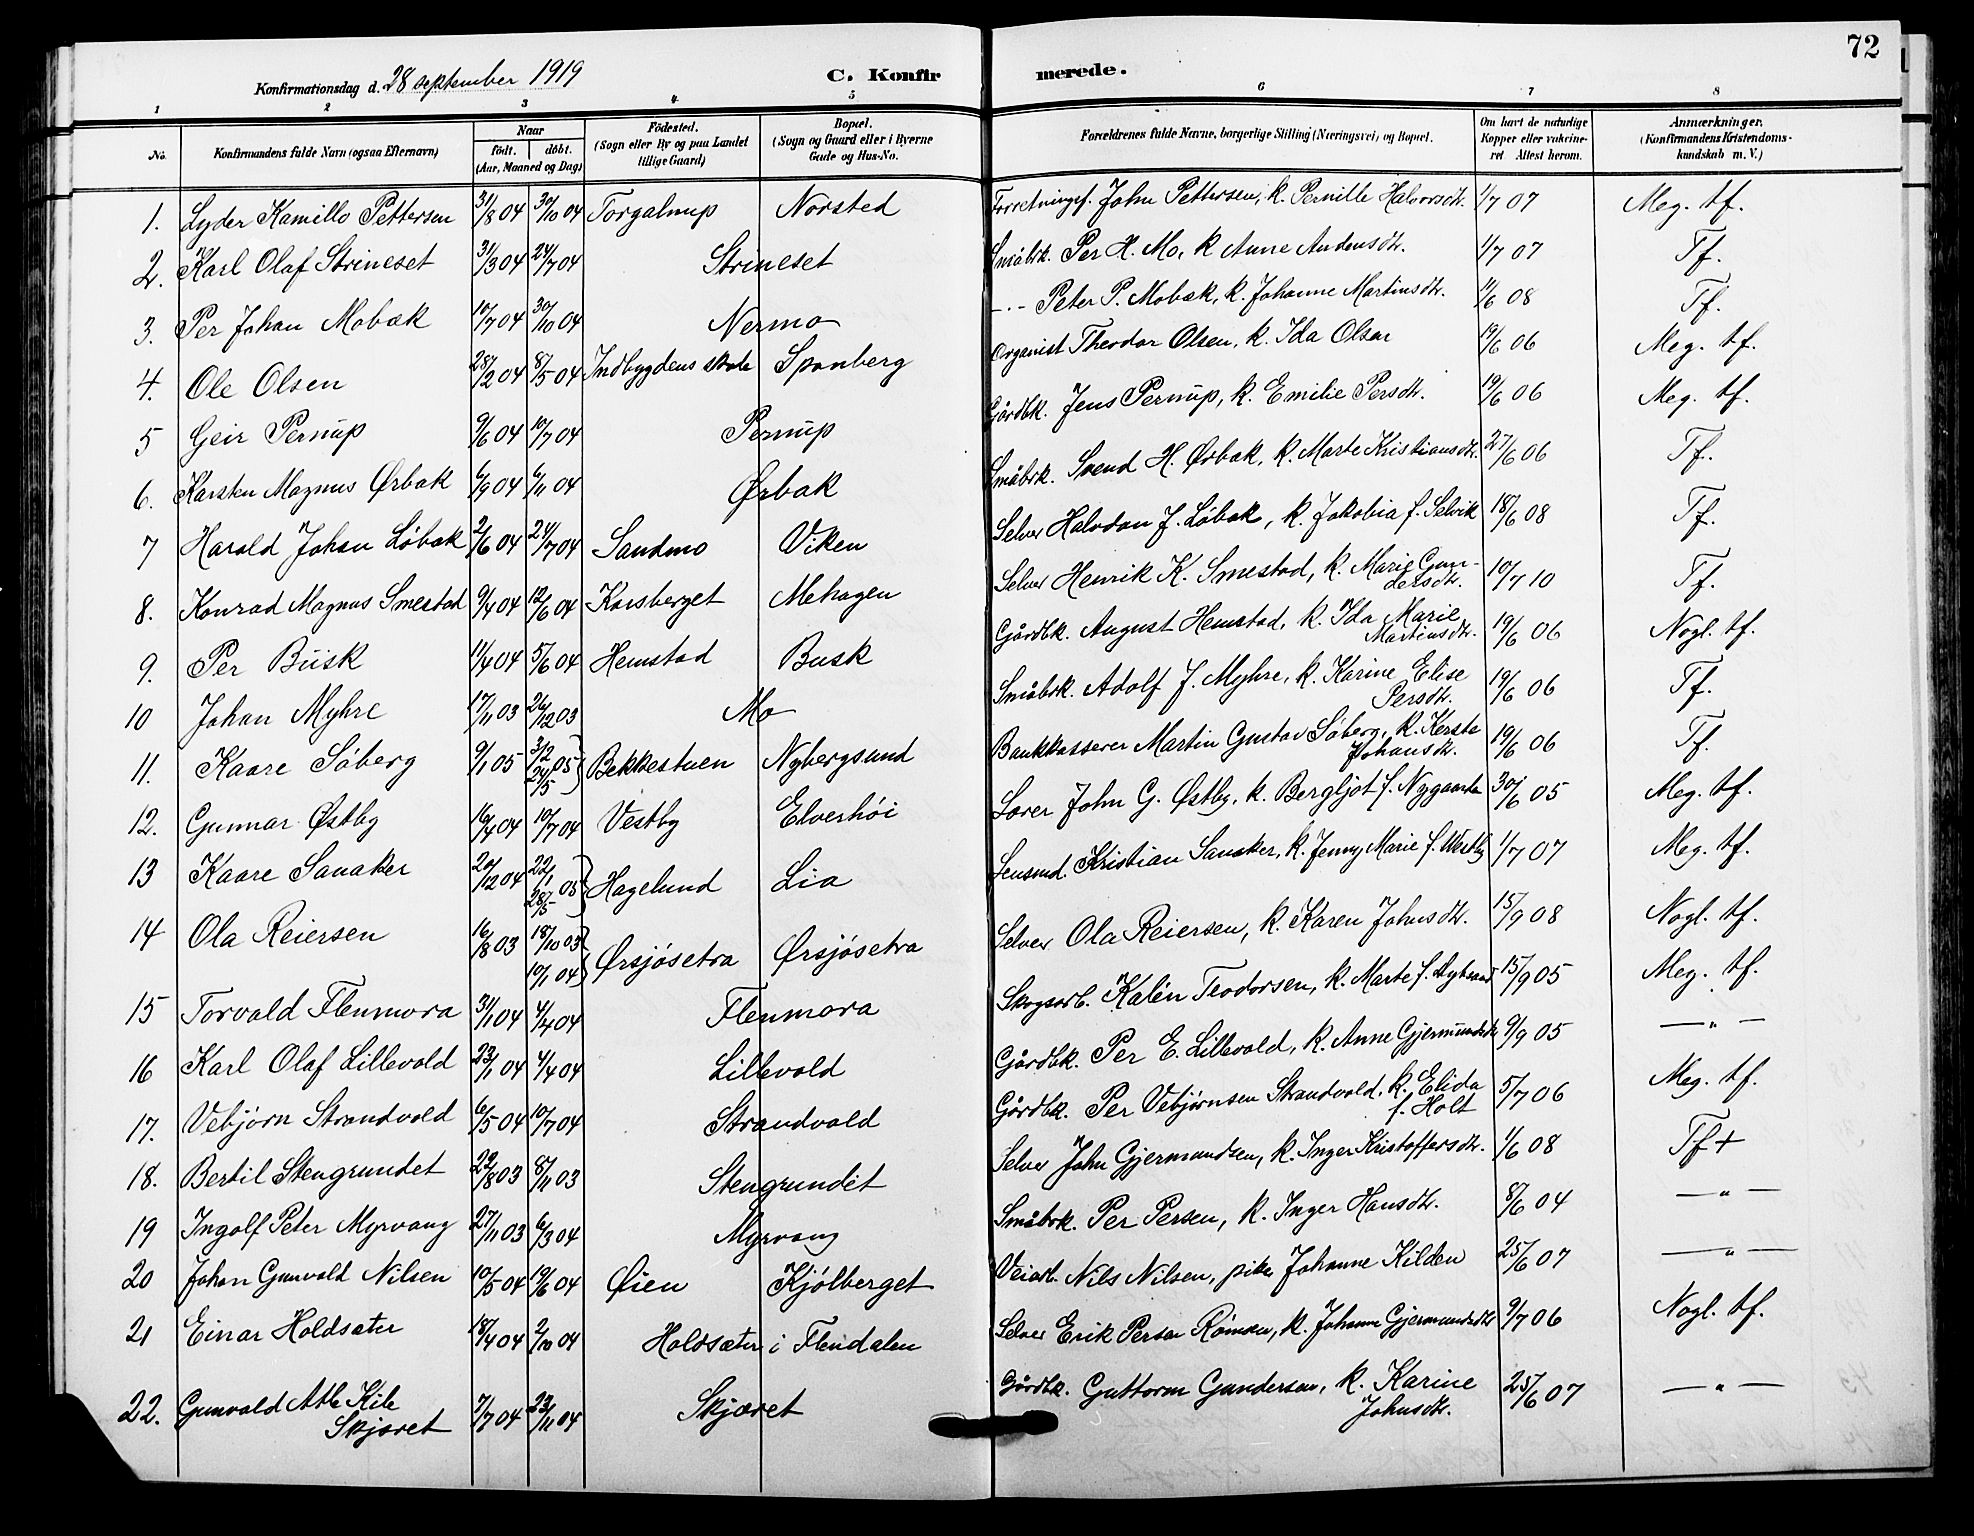 72
Konfirmationsdag d. 28 september 1919
C. Konfirmerede.
1 2 3 4 5 6 7 8
No. | Konfirmandens fulde Navn (ogsaa Efternavn) | Naar født. døbt. (Aar, Maaned og Dag) | Fødested. (Sogn eller By og paa Landet tillige Gaard) | Bopæl. (Sogn og Gaard eller i Byerne Gade og Hus-No. | Forældrenes fulde Navne, borgerlige Stilling (Næringsvei) og Bopæl. | Om havt de naturlige Kopper eller vakcineret Attest herom. | Anmærkninger. (Konfirmandens Kristendomskundskab m. V.)
1. Lyder Kamillo Pettersen 31/8 04 30/10 04 Torgalmup Norsted Forretningsf. John Pettersen, k. Pernille Halvorsdtr. 1/7 07 Meg. tf.
2. Karl Olaf Strineset 31/3 04 24/7 04 Strineset Småbrk. Per H. Mo, k Anne Andersdtr. 1/7 07 Tf.
3. Per Johan Mobæk 10/7 04 30/10 04 Nermo -"- Peter P. Mobæk, k. Johanne Martinsdtr. 11/6 08 Tf.
4. Ole Olsen 28/2 04 8/5 04 Indbygdens skole Spanberg Organist Theodor Olsen, k. Ida Olsen 19/6 06 Meg. tf.
5 Geir Pernup 9/6 04 10/7 04 Pernup Gårdbk. Jens Pernup, k. Emilie Persdtr. 19/6 06 Meg. tf.
6. Karsten Magnus Ørbæk 6/9 04 6/11 04 Ørbæk Småbrk. Svend H. Ørbæk, k. Marte Kristiansdtr. 27/6 06 Tf.
7 Harald Johan Løbak 2/6 04 24/7 04 Sandmo Viken Selvei Halvdan J. Løbak, k. Jakobia f. Selvik 18/6 08 Tf.
8. Konrad Magnus Smestad 9/4 04 12/6 04 Korsberget Mehagen Selvei Henrik K. Smestad, k. Marie Gundersdtr. 10/7 10 Tf.
9. Per Busk 11/4 04 5/6 04 Hemstad Busk Gårdbk. August Hemstad, k. Ida Marie Martinsdtr. 19/6 06 Nogl. tf.
10 Johan Myhre 17/11 03 26/12 03 Mo Småbrk. Adolf J. Myhre, k. Karine Elise Persdtr. 19/6 06 Tf.
11. Kaare Söberg 9/1 05 3/2 24/5 05 Bekkestuen Nybergsund Bankkasserer Martin Gustav Söberg, k. Kersta Johansdtr. 19/6 06 Tf.
12. Gunnar Østby 16/4 04 10/7 04 Vestby Elverhöi Lærer John G. Østby, k. Bergljot f. Nygaarda 30/6 05 Meg. tf.
13 Kaare Sanaker 20/12 04 22/1 28/5 05 Hagelund Lia Lensmd. Kristian Sanaker, k. Jenny Marie f. Westby 1/7 07 Meg. tf.
14 Ola Reiersen 16/8 03 18/10 03 10/1 04 Ørsjösetra Ørsjösetra Selvei Ola Reiersen, k. Karen Johnsdtr. 15/9 08 Nogl. tf.
15 Torvald Flenmora 31/1 04 4/4 04 Flenmora Skogsarb. Kalén Teodorsen, k. Marte f. Nybrend 15/9 05 Meg. tf.
16 Karl Olaf Lillevold 23/1 04 4/4 04 Lillevold Gårdbk. Per E. Lillevold, k. Anne Gjermundsdtr 9/9 05 — " —
17. Vebjörn Strandvold 6/5 04 10/7 04 Strandvold Gårdbk. Per Vebjørnsen Strandvold, k. Elida f. Holt 5/7 06 Meg. tf.
18. Bertil Stengrundet 22/8 03 8/11 03 Stengrundet Selvei John Gjermundsen, k. Inger Kristoffersdtr. 1/6 08 Tf+
19 Ingolf Peter Myrvang 27/11 03 6/3 04 Myrvang Småbrk. Per Persen, k. Inger Hansdtr. 8/6 04 — " —
20 Johan Gunvald Nilsen 10/5 04 19/6 04 Øien Kjölberget Veiarb. Nils Nilsen, pike Johanne Kilden 25/6 07 — " —
21 Einar Holdsæter 18/4 04 2/10 04 Holdsæter i Flendalen Selvei Erik Persen Römoen, k. Johanne Gjermundsdtr 9/7 06 Nogl. tf.
22. Gunvald Atle Kile Skjæret 7/7 04 23/11 04 Skjæret Gårdbk. Guttorm Gundersen, k. Karine Johnsdtr. 25/6 07 — " —